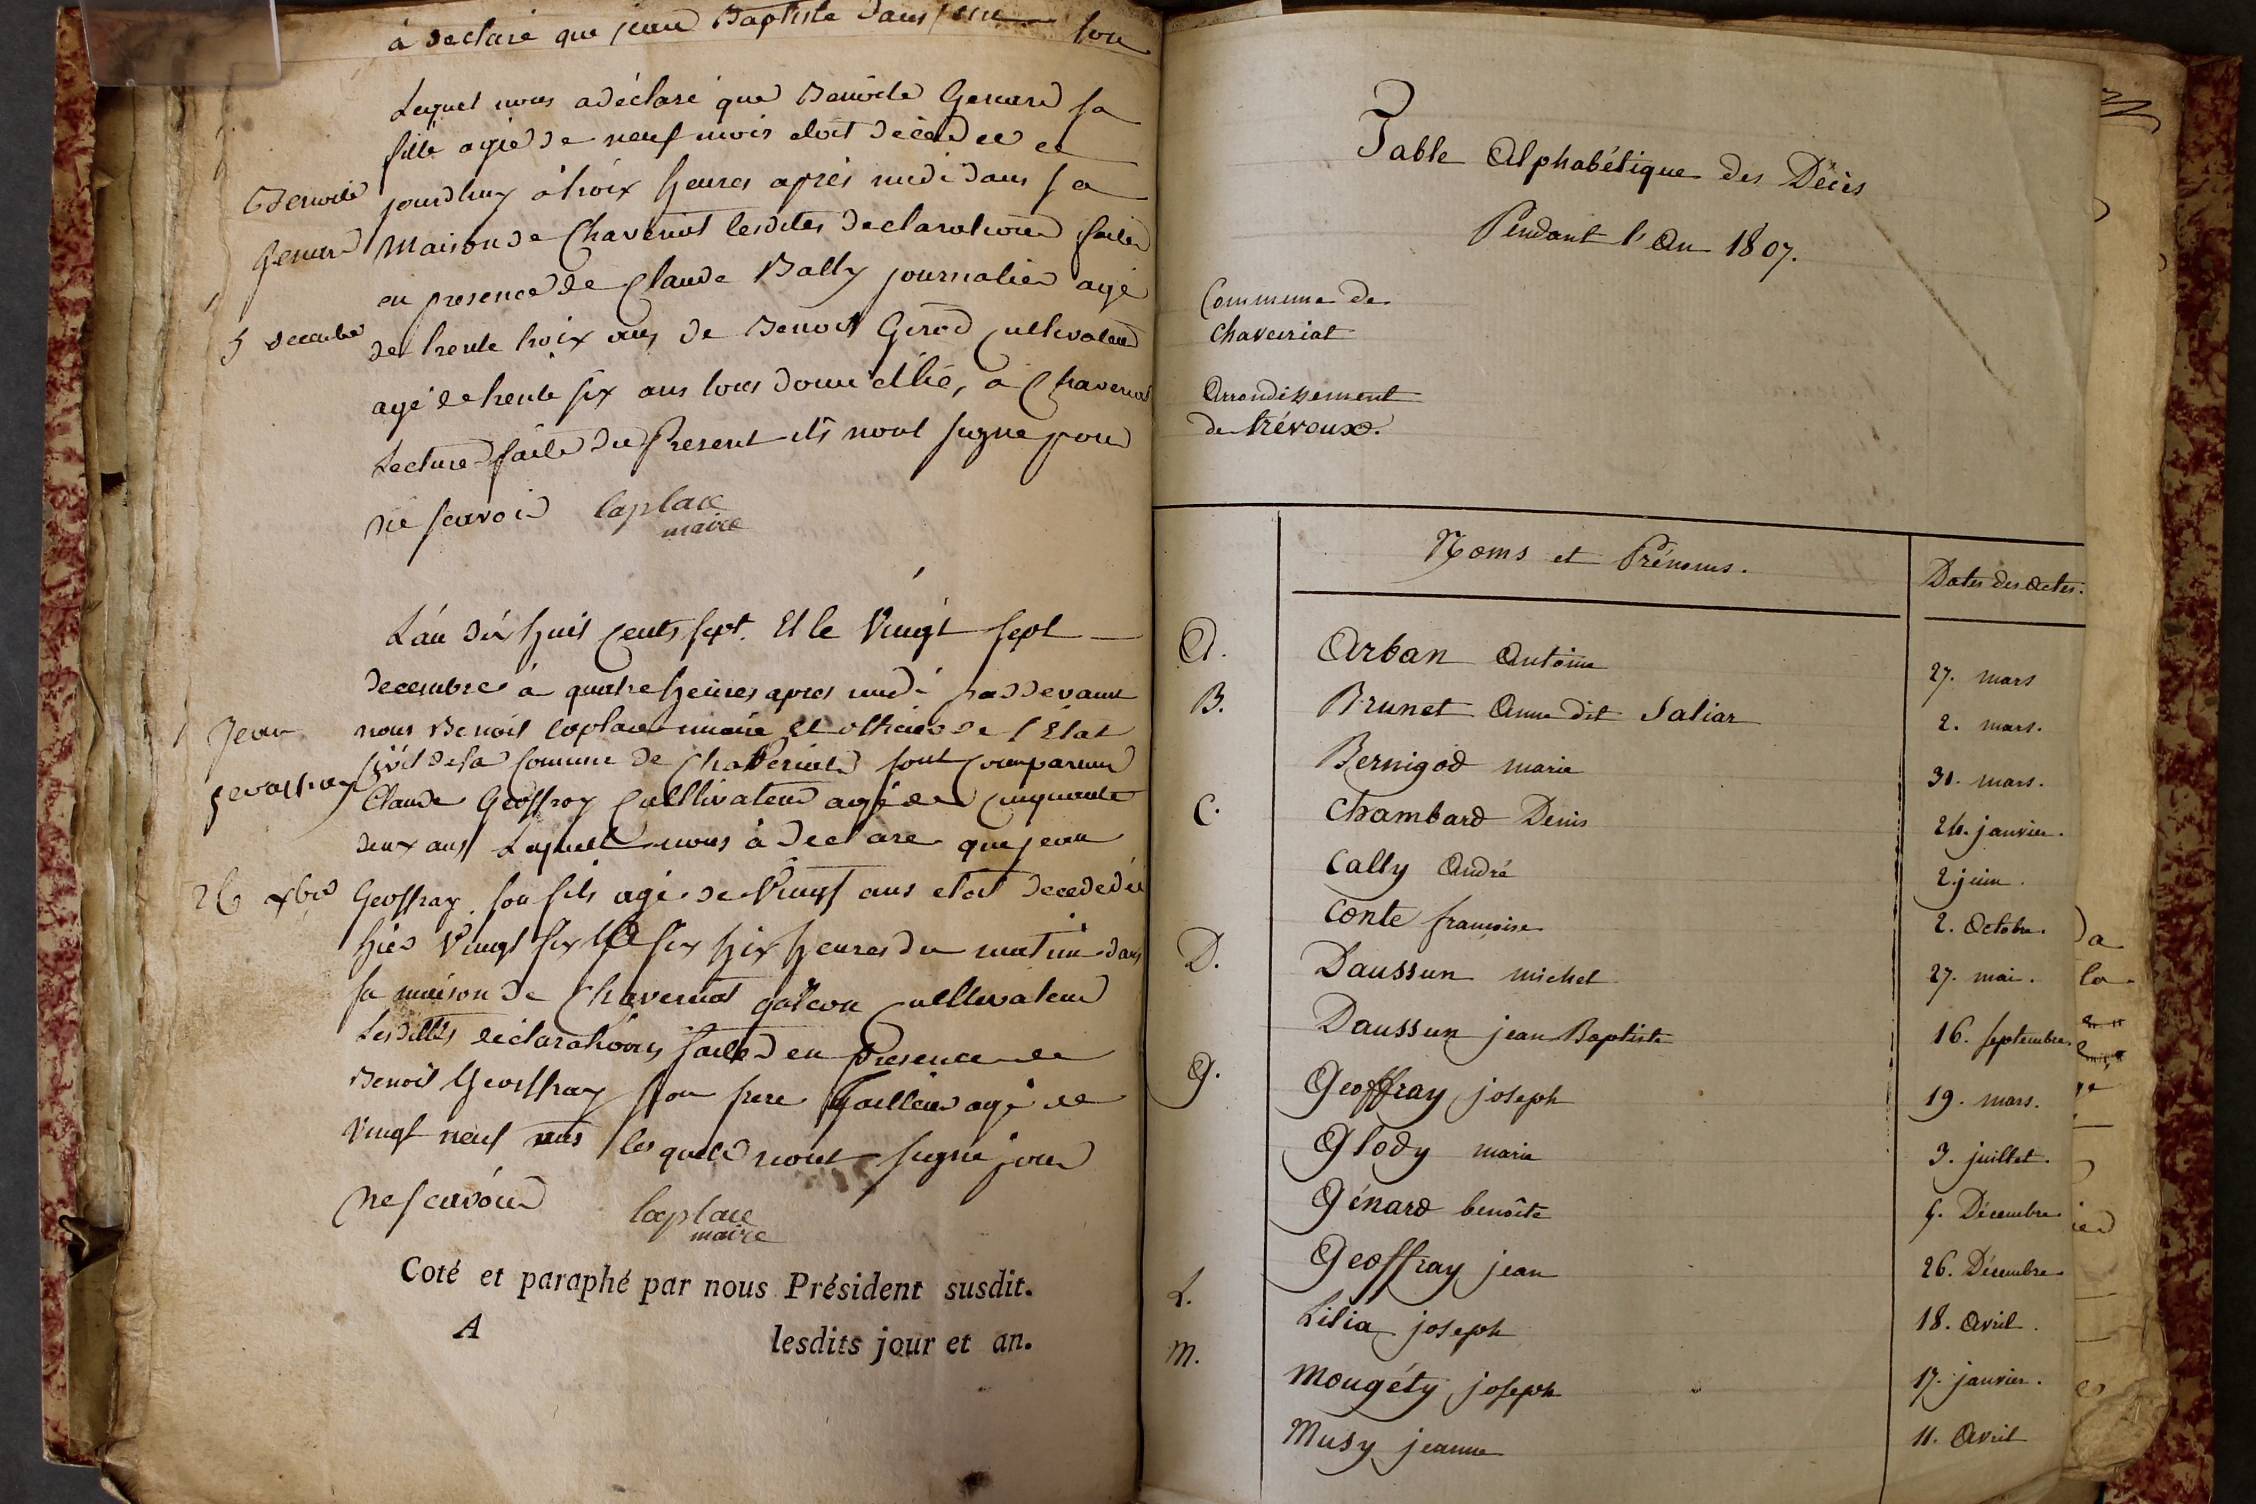 à declaré que jean Baptiste Daus son
Lequel nous a déclaré que Benoite Genard sa
fille agée de neuf mois etoit décédée ce
jourdhuy à troix heures après midi dans sa
Maison de Chaveriat lesdites declarations faites
en presence de Claude Bally journalier agé
de trente troix ans de Benoit Girod Cultivateur
agé de trente six ans tous domicillié, a Chaveriat
Lecture faite du Present ils nont signe pour
ne scavoir laplace
maire
Benoite
Genard
5 decembre
L'an dix huit Cents sept. Et le Vingt sept
decembre à quatre heures apres midi pardevant
nous Benoit laplace maire Et officier de l'État
Civil de la Comune de Chaveriat sont comparu
Claude Geoffroy Cultlivateur agé de Cinquante
deux ans Lequel nous à declare que jean
Geoffray son fils agé de Vingt ans etoit decedé
hier Vingt six six heures du matin dans
sa maison de Chaveriat garcon cultlivateur
Lesdittes déclarations faites en Presence de
Benoit Geoffray son frere Tailleur agé de
Vingt neuf ans lesquels nont signé pour
ne scavoir laplace
maire
Jean
gevoffray
26 xbre
Coté et paraphé par nous Président susdit.
A lesdits jour et an.
Table Alphabétique des Décès
Pendant l'An 1807.
Commune de
Chaveiriat
Arrondissement
de Trévoux.
Noms et Prénoms. Dates des Actes.
A. Arban Antoine 27. mars
B. Brunet Anne dit Saliar 2. mars.
Bernigod marie 31. mars.
C. Chambard Denis 26. janvier.
Cally André 2. juin.
Conte francoise 2. Octobre.
D. Daussun michel 27. mai.
Daussun jean Baptiste 16. septembre.
G. Geoffray joseph 19. mars.
Glody marie 3. juillet.
Génard benoîte 5. Décembre.
Geoffray jean 26. Décembre.
L. Lilia joseph 18. Avril.
M. Mougéty joseph 17. janvier.
Musy jeanne 11. Avril